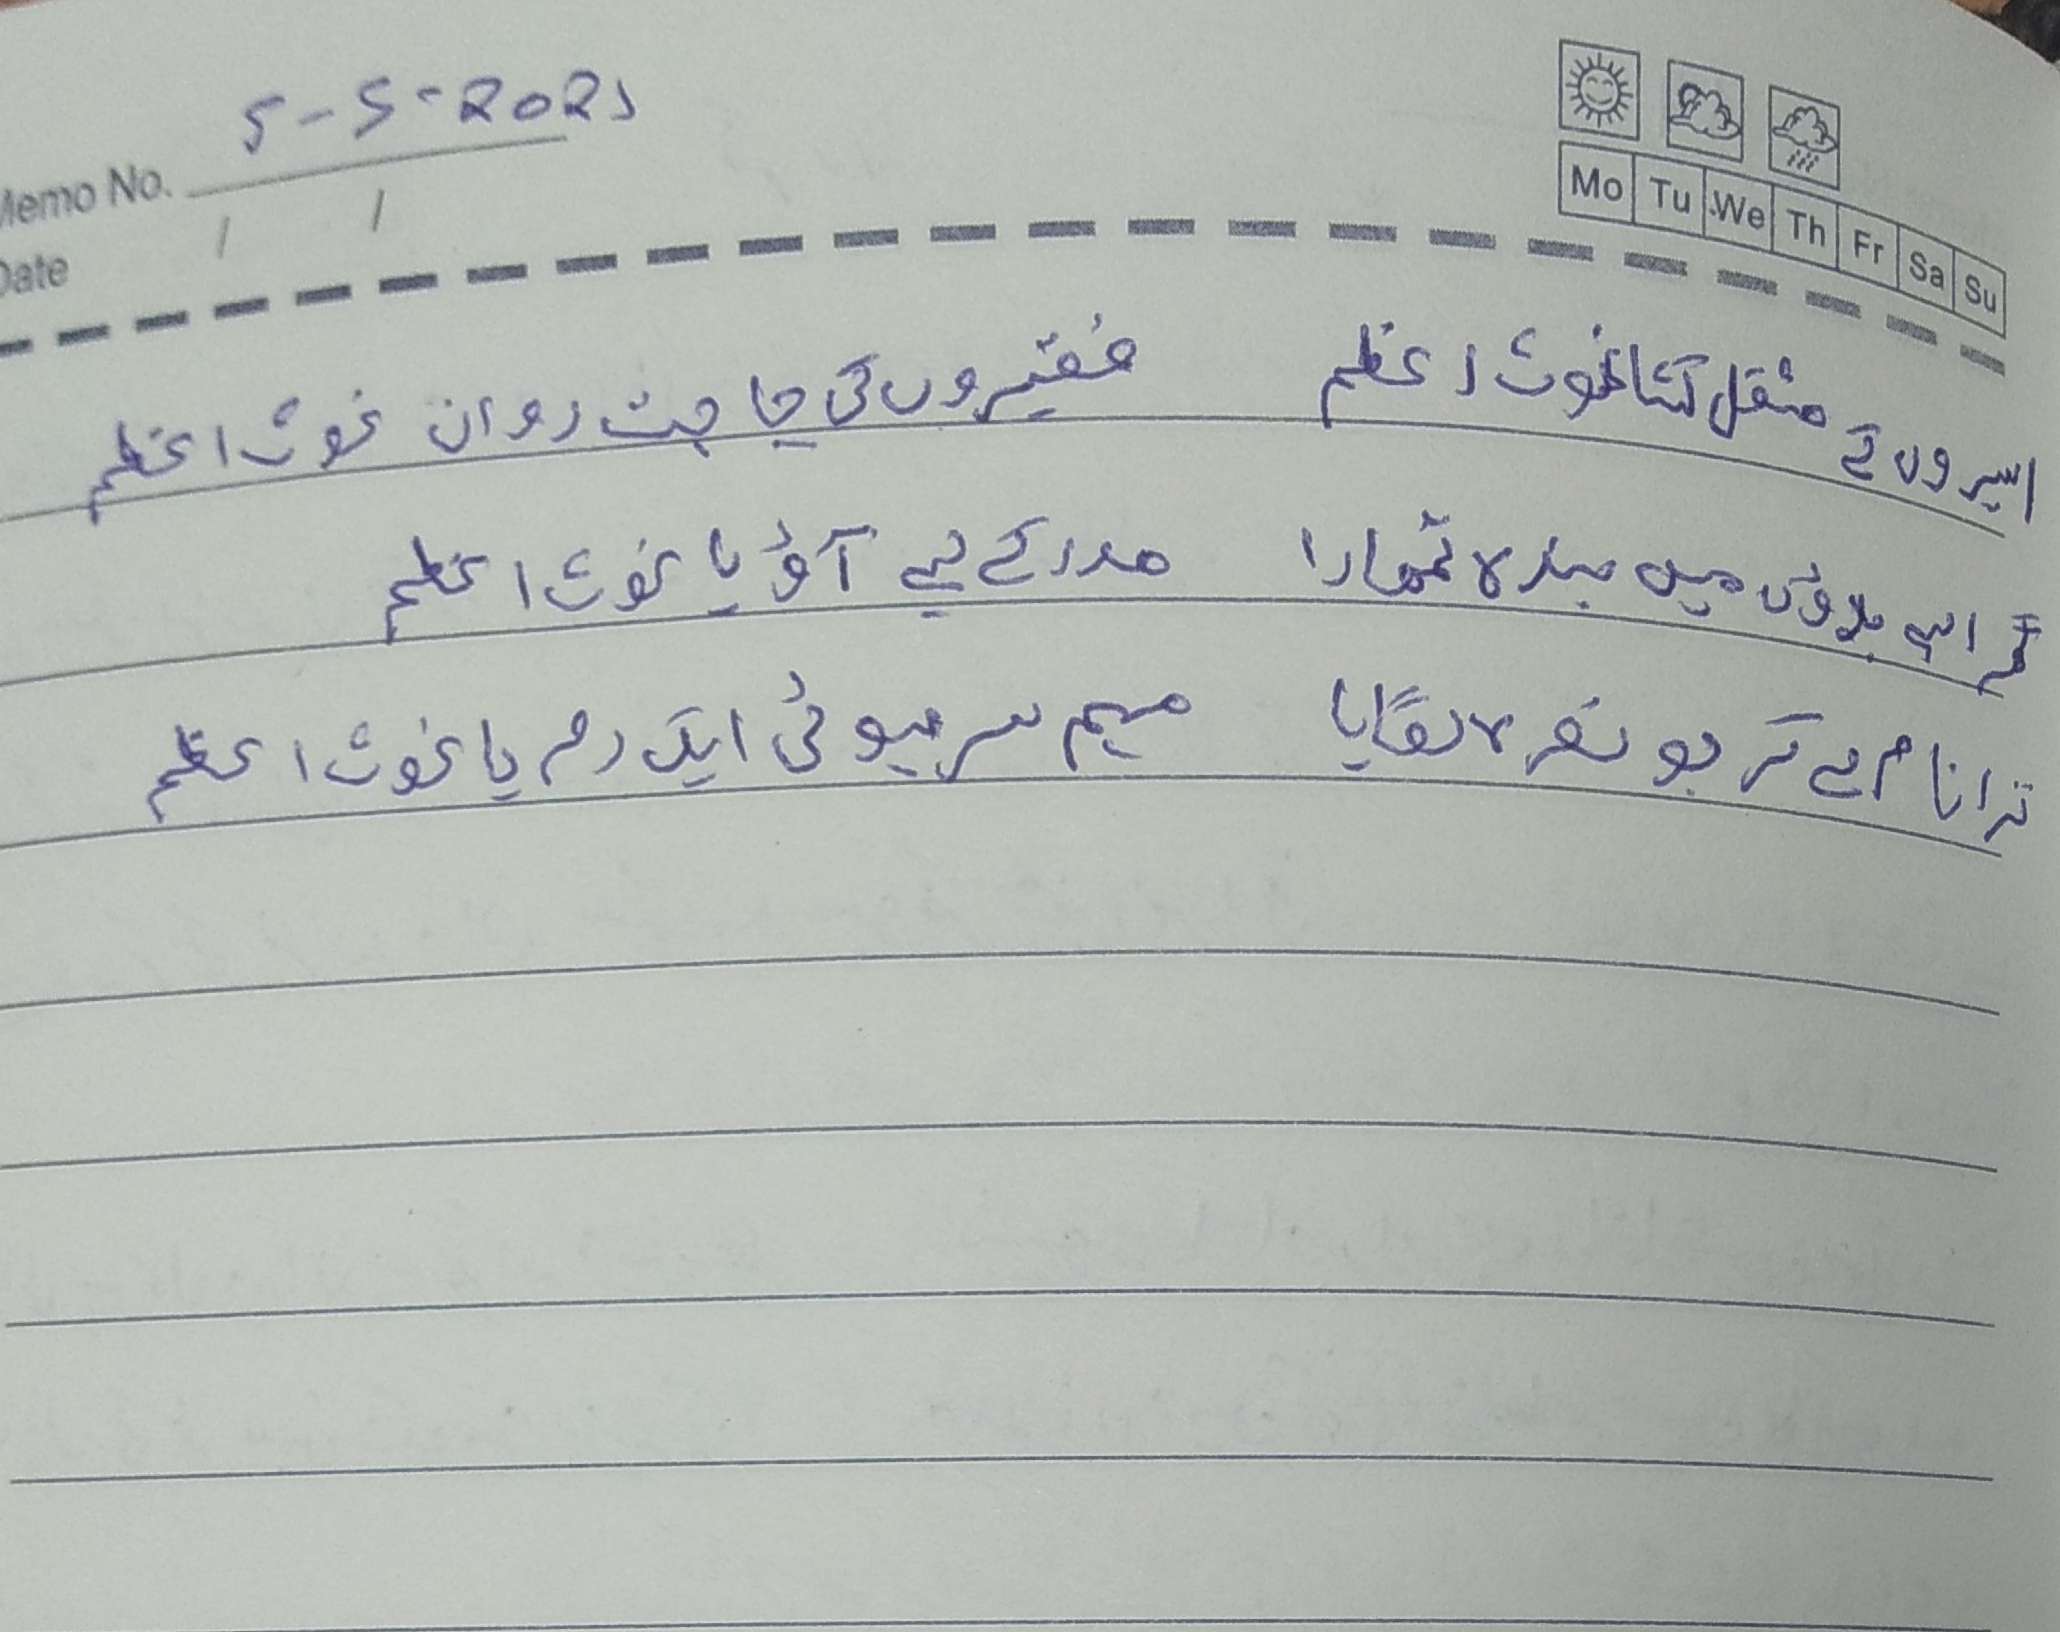 5-5-2021
Memo No.
Date / /
Mo Tu We Th Fr Sa Su
اسیروں کے مشقل کشا غوث اعظم فقیروں کی حاجت رواں غوث اعظم
اہے بلاؤں میں بندہ تمھارا مدد کے لیے آؤ یا غوث اعظم
ترا نام لے کر جو نعرہ لگایا مہم سر ہوئی ایک دم یا غوث اعظم